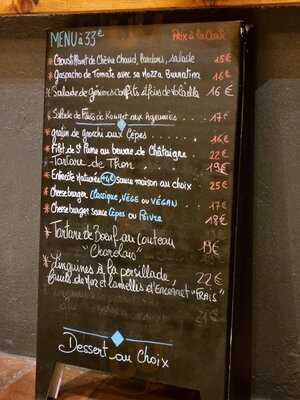 MENU à 33€ Prix à la Carte
* Croustillant de Chèvre Chaud, lardons, salade 15€
* Gaspacho de Tomate avec sa Mozza Burratina 16€
* Salade de Gésiers confits & foies de Volaille 16€
* Salade de Foies de Kougat aux Agrumes 17€
* gratin de gnocchi aux Cèpes 16€
* Filet de St Pierre au beurre de Châtaigne 22€
Tartare de Thon 19€
* Entrecôte Maturée +4€ sauce maison au choix 25€
* Cheeseburger Classique, VÉGÉ ou VÉGAN 17€
* Cheeseburger sauce Cèpes ou Poivre 18€
* Tartare de Bœuf au Couteau 19€
"Charolais"
* Linguines à la persillade, 22€
fruits de Mer et lamelles d'Encornet "FRAIS"
Dessert au Choix